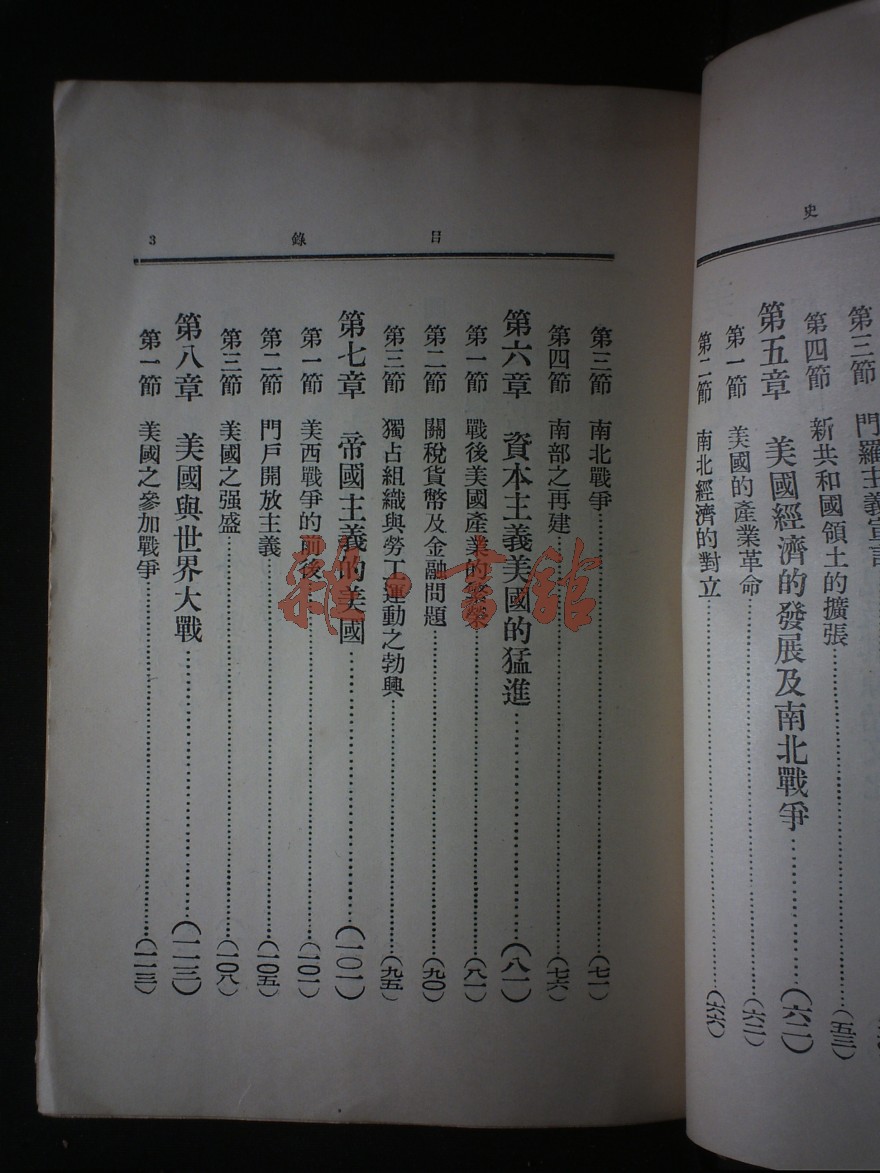 史
第三節　門羅主義宣言
第四節　新共和國領土的擴張……(五三)
第五章　美國經濟的發展及南北戰爭……(六二)
第一節　美國的產業革命……(六二)
第二節　南北經濟的對立……(六六)
目錄　3
第三節　南北戰爭……(七一)
第四節　南部之再建……(七六)
第六章　資本主義美國的猛進……(八一)
第一節　戰後美國產業的繁榮……(八一)
第二節　關稅貨幣及金融問題……(九〇)
第三節　獨占組織與勞工運動之勃興……(九五)
第七章　帝國主義的美國……(一〇一)
第一節　美西戰爭的前後……(一〇一)
第二節　門戶開放主義……(一〇五)
第三節　美國之强盛……(一〇八)
第八章　美國與世界大戰……(一一三)
第一節　美國之參加戰爭……(一一三)
雜·書館